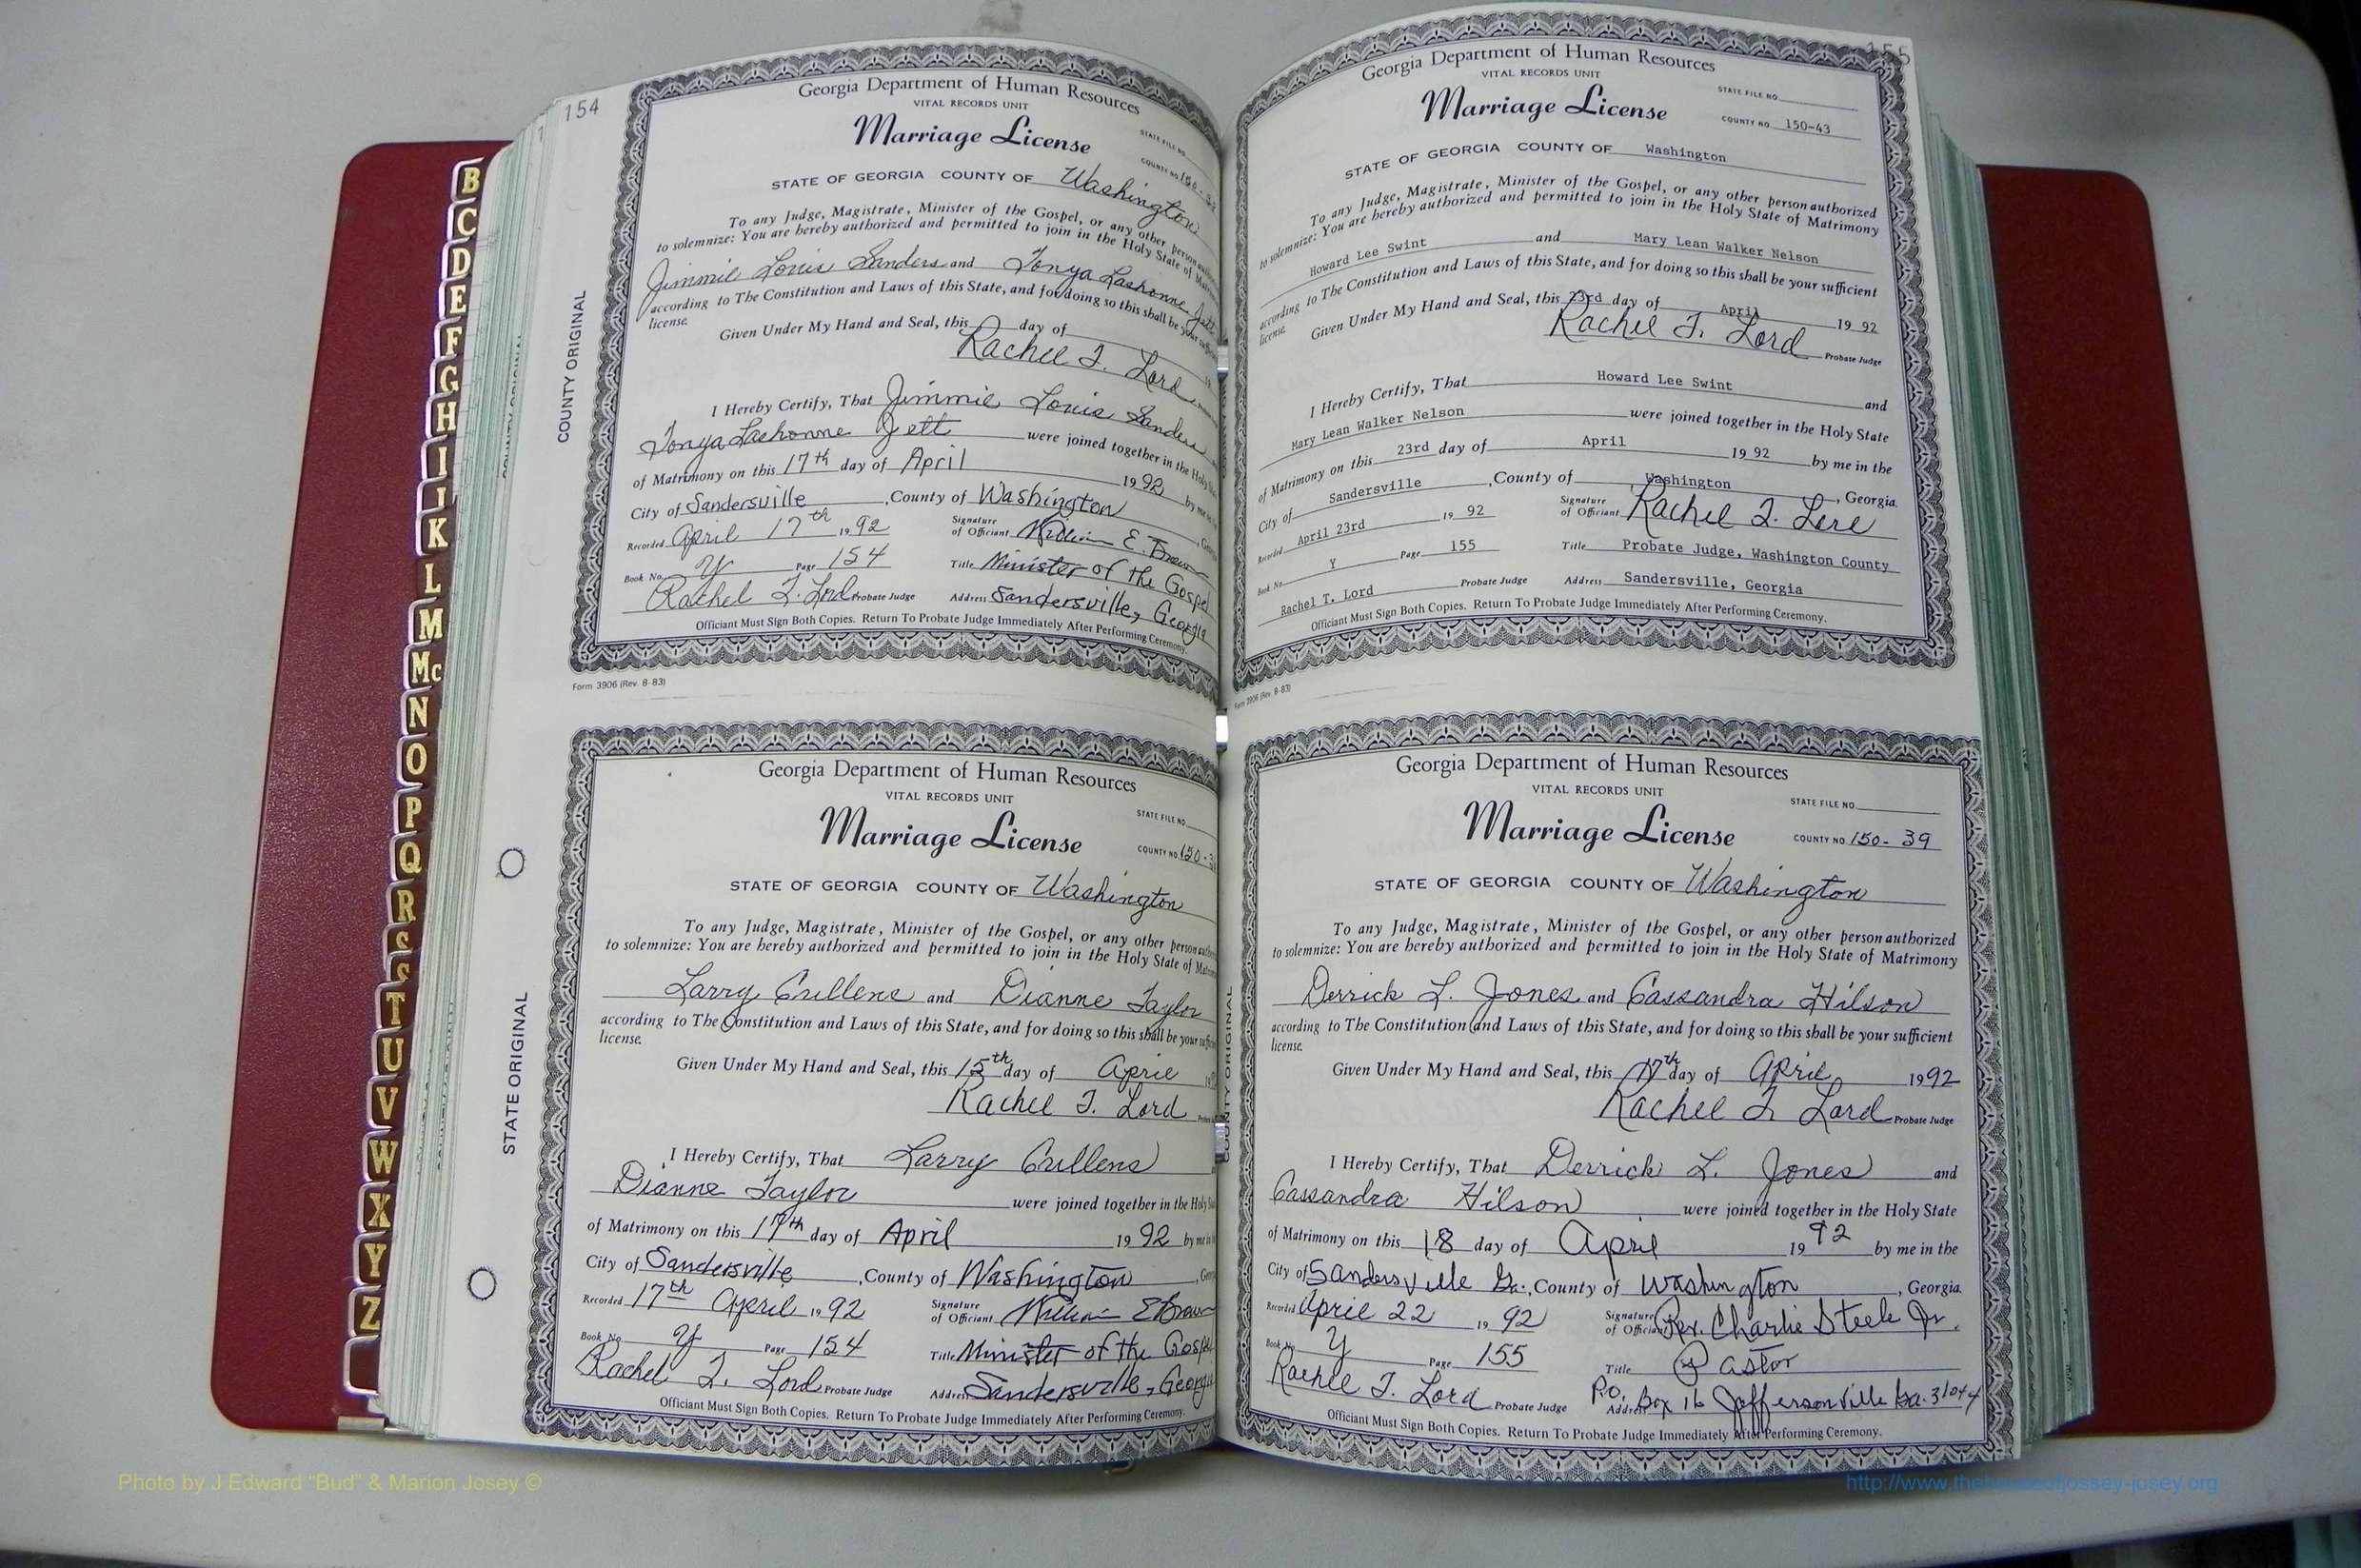 154
Georgia Department of Human Resources
VITAL RECORDS UNIT
Marriage License
STATE FILE NO.
COUNTY NO.
STATE OF GEORGIA COUNTY OF Washington
To any Judge, Magistrate, Minister of the Gospel, or any other person
to solemnize: You are hereby authorized and permitted to join in the Holy State of
Jimmie Louis Sanders and Tonya Lashonne Jett
according to The Constitution and Laws of this State, and for doing so this shall be your
license.
Given Under My Hand and Seal, this day of
Rachel T. Lord
I Hereby Certify, That Jimmie Louis Sanders
Tonya Lashonne Jett were joined together in the Holy
of Matrimony on this 17th day of April 1992 by me in
City of Sandersville, County of Washington
Recorded April 17th 1992 Signature of Officiant William E. Brown
Book No. Y Page 154 Title Minister of the Gospel
Rachel T. Lord Probate Judge Address Sandersville, Georgia
Officiant Must Sign Both Copies. Return To Probate Judge Immediately After Performing Ceremony.
Form 3906 (Rev. 8-83)
COUNTY ORIGINAL
Georgia Department of Human Resources
VITAL RECORDS UNIT
Marriage License
STATE FILE NO.
COUNTY NO.
STATE OF GEORGIA COUNTY OF Washington
To any Judge, Magistrate, Minister of the Gospel, or any other person
to solemnize: You are hereby authorized and permitted to join in the Holy State of
Larry Cullens and Dianne Taylor
according to The Constitution and Laws of this State, and for doing so this shall be your
license.
Given Under My Hand and Seal, this 15th day of April
Rachel T. Lord
I Hereby Certify, That Larry Cullens
Dianne Taylor were joined together in the Holy
of Matrimony on this 17th day of April 1992 by me in
City of Sandersville, County of Washington
Recorded 17th April 1992 Signature of Officiant William E Brown
Book No. Y Page 154 Title Minister of the Gospel
Rachel T. Lord Probate Judge Address Sandersville, Georgia
Officiant Must Sign Both Copies. Return To Probate Judge Immediately After Performing Ceremony.
STATE ORIGINAL
155
Georgia Department of Human Resources
VITAL RECORDS UNIT
Marriage License
STATE FILE NO.
COUNTY NO. 150-43
STATE OF GEORGIA COUNTY OF Washington
To any Judge, Magistrate, Minister of the Gospel, or any other person authorized
to solemnize: You are hereby authorized and permitted to join in the Holy State of Matrimony
Howard Lee Swint and Mary Lean Walker Nelson
according to The Constitution and Laws of this State, and for doing so this shall be your sufficient
license.
Given Under My Hand and Seal, this 23rd day of April 19 92
Rachel T. Lord Probate Judge
I Hereby Certify, That Howard Lee Swint and
Mary Lean Walker Nelson were joined together in the Holy State
of Matrimony on this 23rd day of April 19 92 by me in the
City of Sandersville, County of Washington, Georgia.
Recorded April 23rd 19 92 Signature of Officiant Rachel T. Lord
Book No. Y Page 155 Title Probate Judge, Washington County
Rachel T. Lord Probate Judge Address Sandersville, Georgia
Officiant Must Sign Both Copies. Return To Probate Judge Immediately After Performing Ceremony.
Form 3906 (Rev. 8-83)
Georgia Department of Human Resources
VITAL RECORDS UNIT
Marriage License
STATE FILE NO.
COUNTY NO. 150-39
STATE OF GEORGIA COUNTY OF Washington
To any Judge, Magistrate, Minister of the Gospel, or any other person authorized
to solemnize: You are hereby authorized and permitted to join in the Holy State of Matrimony
Derrick L. Jones and Cassandra Hilson
according to The Constitution and Laws of this State, and for doing so this shall be your sufficient
license.
Given Under My Hand and Seal, this 17th day of April 1992
Rachel T. Lord Probate Judge
I Hereby Certify, That Derrick L. Jones and
Cassandra Hilson were joined together in the Holy State
of Matrimony on this 18 day of April 19 92 by me in the
City of Sandersville Ga., County of Washington, Georgia.
Recorded April 22 1992 Signature of Officiant Rev. Charlie Steele Jr.
Book No. Y Page 155 Title Pastor
Rachel T. Lord Probate Judge Address P.O. Box 16 Jeffersonville Ga. 31044
Officiant Must Sign Both Copies. Return To Probate Judge Immediately After Performing Ceremony.
B
C
D
E
F
G
H
I
J
K
L
M
Mc
N
O
P
Q
R
S
S
T
U
V
W
X
Y
Z
Photo by J Edward "Bud" & Marion Josey ©
http://www.thehouseofjossey-josey.org